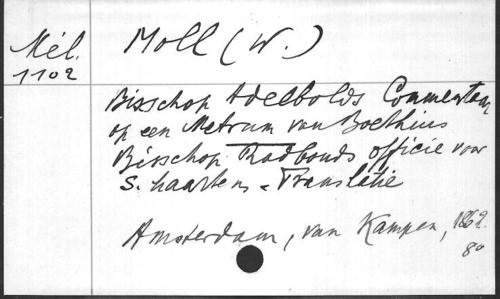 Mél.
1102
Moll (W.)
Bisschop Adelbolds Commentaar
op een Metrum van Boethius
Bisschop Radbouds officie voor
S. Maartens-Translatie
Amsterdam, van Kampen, 1862.
8o